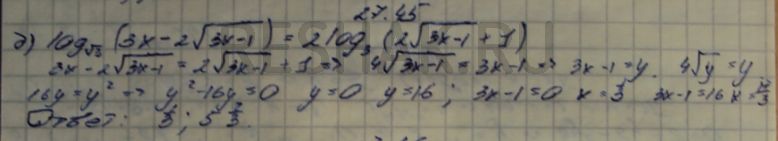 27.45
д) log√3 (3x-2√3x-1) = 2log₃ (2√3x-1 + 1)
3x-2√3x-1 = 2√3x-1 + 1 => 4√3x-1 = 3x-1 => 3x-1=y. 4√y = y
16y=y² => y²-16y=0 y=0 y=16; 3x-1=0 x=1/3 3x-1=16 x=17/3
Ответ: 1/3; 5 2/3.